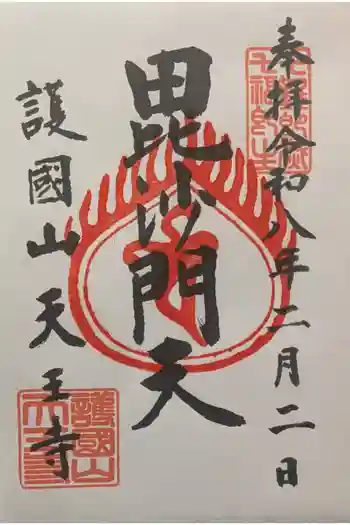 奉拝令和八年二月二日
毘沙門天
護國山天王寺
護國山